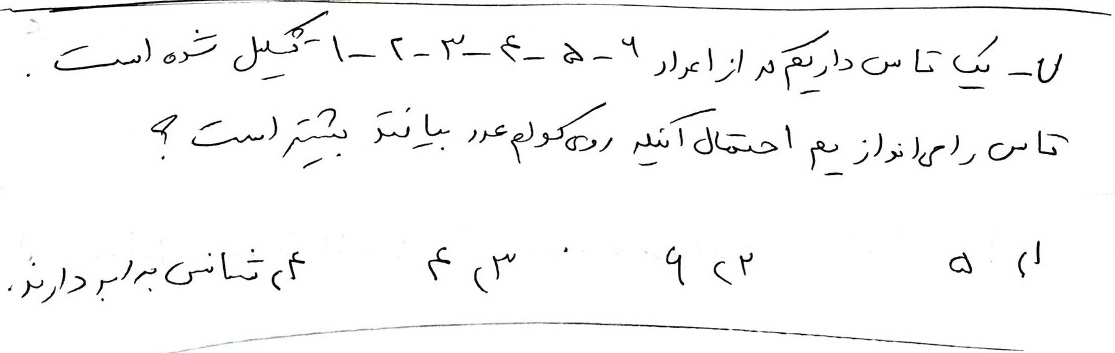 ۷- یک تاس داریم که از اعداد ۶-۵-۴-۳-۲-۱ تشکیل شده است.
تاس را می‌اندازیم احتمال آنکه روی کدام عدد بیافتد بیشتر است؟
۱) ۵ ۲) ۶ ۳) ۴ ۴) شانس برابر دارند.